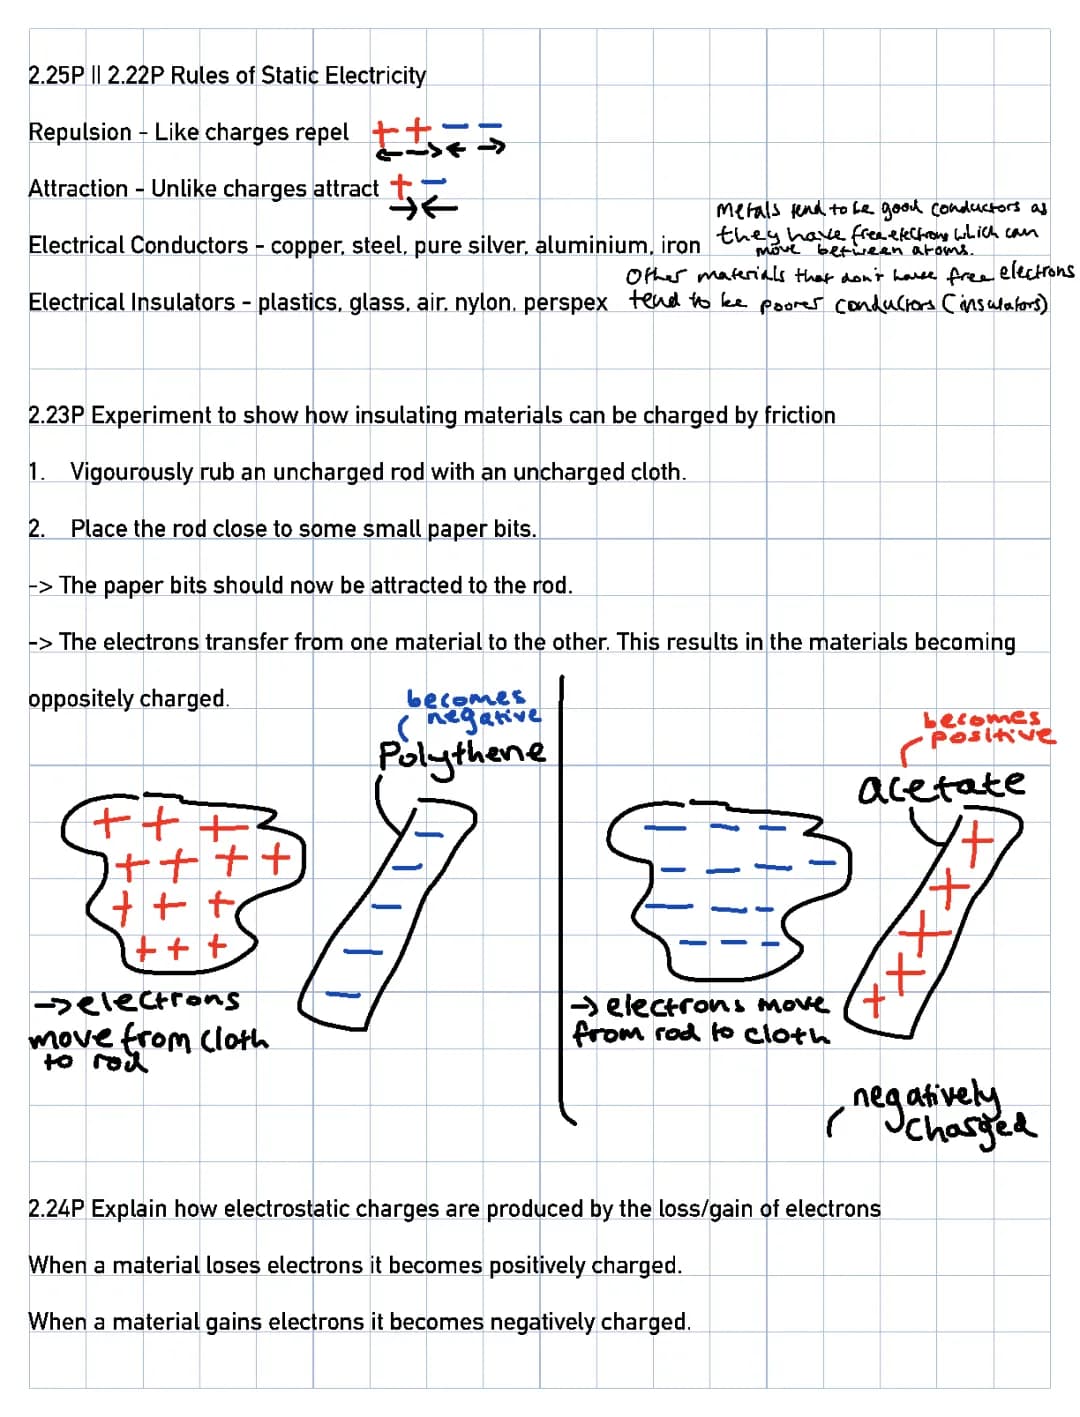 2.25P || 2.22P Rules of Static Electricity
Repulsion - Like charges repel + + − −
Attraction - Unlike charges attract + −
Metals tend to be good conductors as
they have free electrons which can
move between atoms.
Electrical Conductors - copper, steel, pure silver, aluminium, iron
Other materials that don't have free electrons
tend to be poorer conductors (insulators)
Electrical Insulators - plastics, glass, air, nylon, perspex
2.23P Experiment to show how insulating materials can be charged by friction
1. Vigourously rub an uncharged rod with an uncharged cloth.
2. Place the rod close to some small paper bits.
-> The paper bits should now be attracted to the rod.
-> The electrons transfer from one material to the other. This results in the materials becoming
oppositely charged.
becomes
negative
Polythene
+ + +
+ + + +
+ + +
+ + +
− − − − −
-> electrons
move from cloth
to rod
becomes
positive
acetate
− − −
− − − −
− − −
− − −
+ + + + +
-> electrons move
from rod to cloth
negatively
charged
2.24P Explain how electrostatic charges are produced by the loss/gain of electrons
When a material loses electrons it becomes positively charged.
When a material gains electrons it becomes negatively charged.